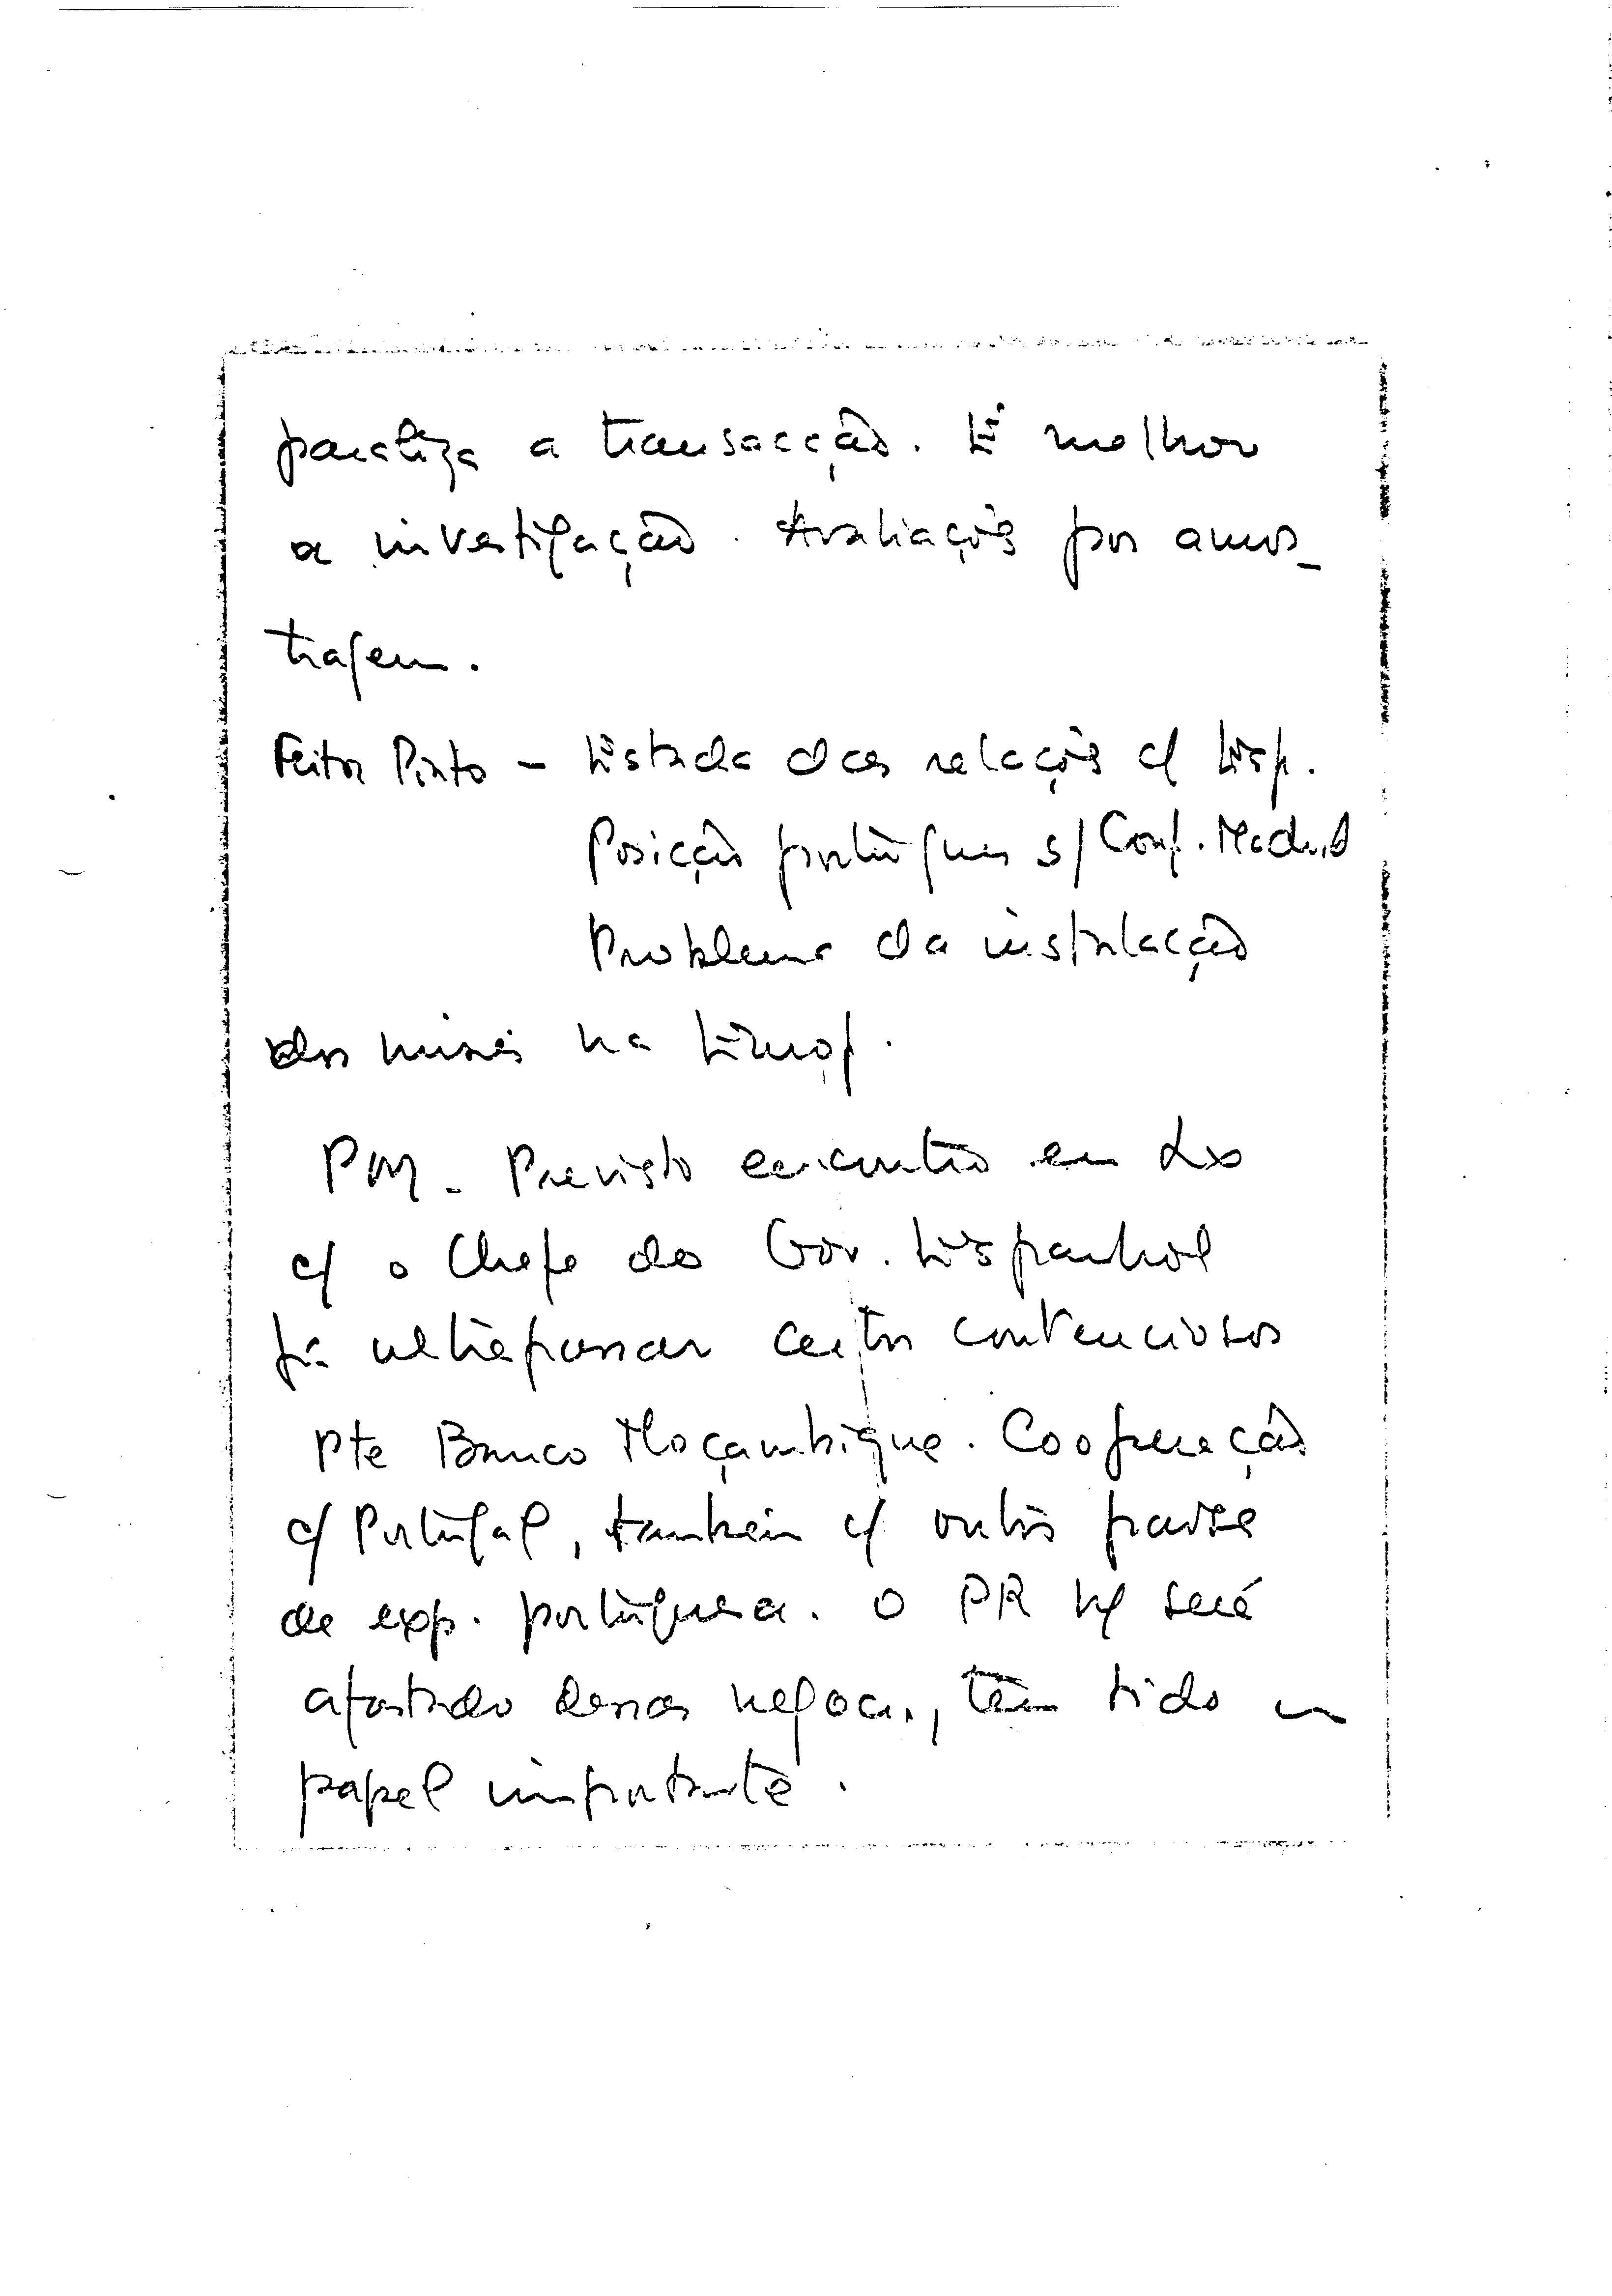 paraliza a transacção. É melhor
a investigação. Avaliações por amos-
tragem.
Feitor Pinto - Estado das relações c/ Esp.
Posição portuguesa s/ Conf. Madrid
Problema da instalação
dos misseis na Europ.
PM. Previsto encontro em Lx
c/ o Chefe do Gov. Espanhol
p.ª ultrapassar certos contenciosos
Pte Banco Moçambique. Cooperação
c/ Portugal, também c/ outros países
de exp. portuguesa. O PR ñ será
afastado dessas negoc., tem tido um
papel importante.